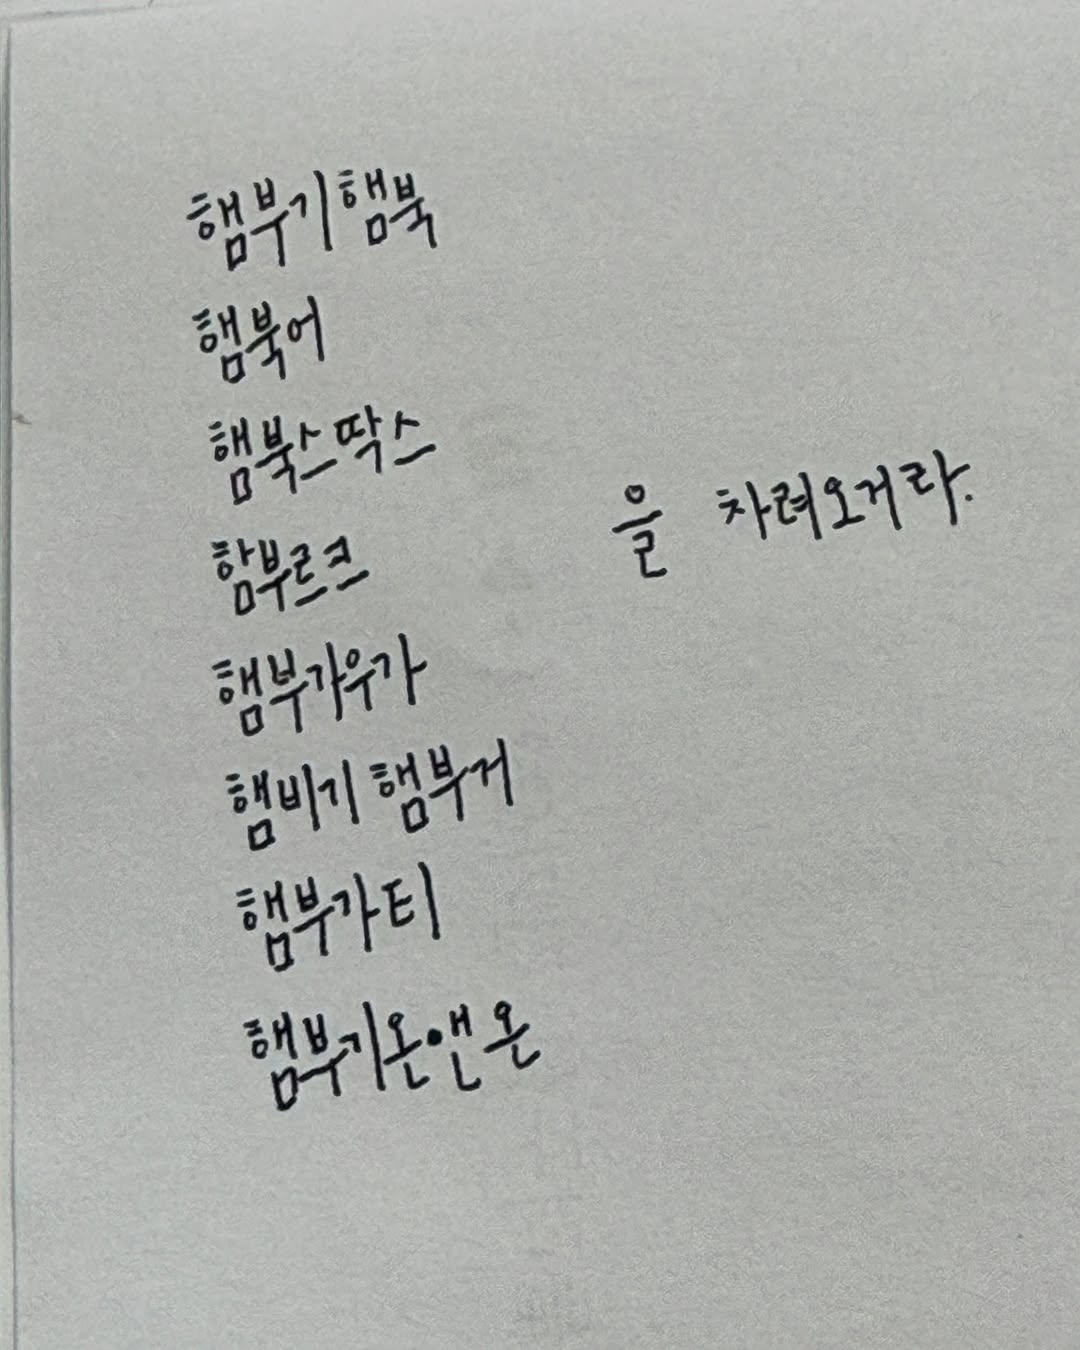 햄부기햄북
햄북어
햄북스딱스
함부르크
햄부가우가
햄비기 햄부거
햄부가티
햄부기온앤온
을 차려오거라.